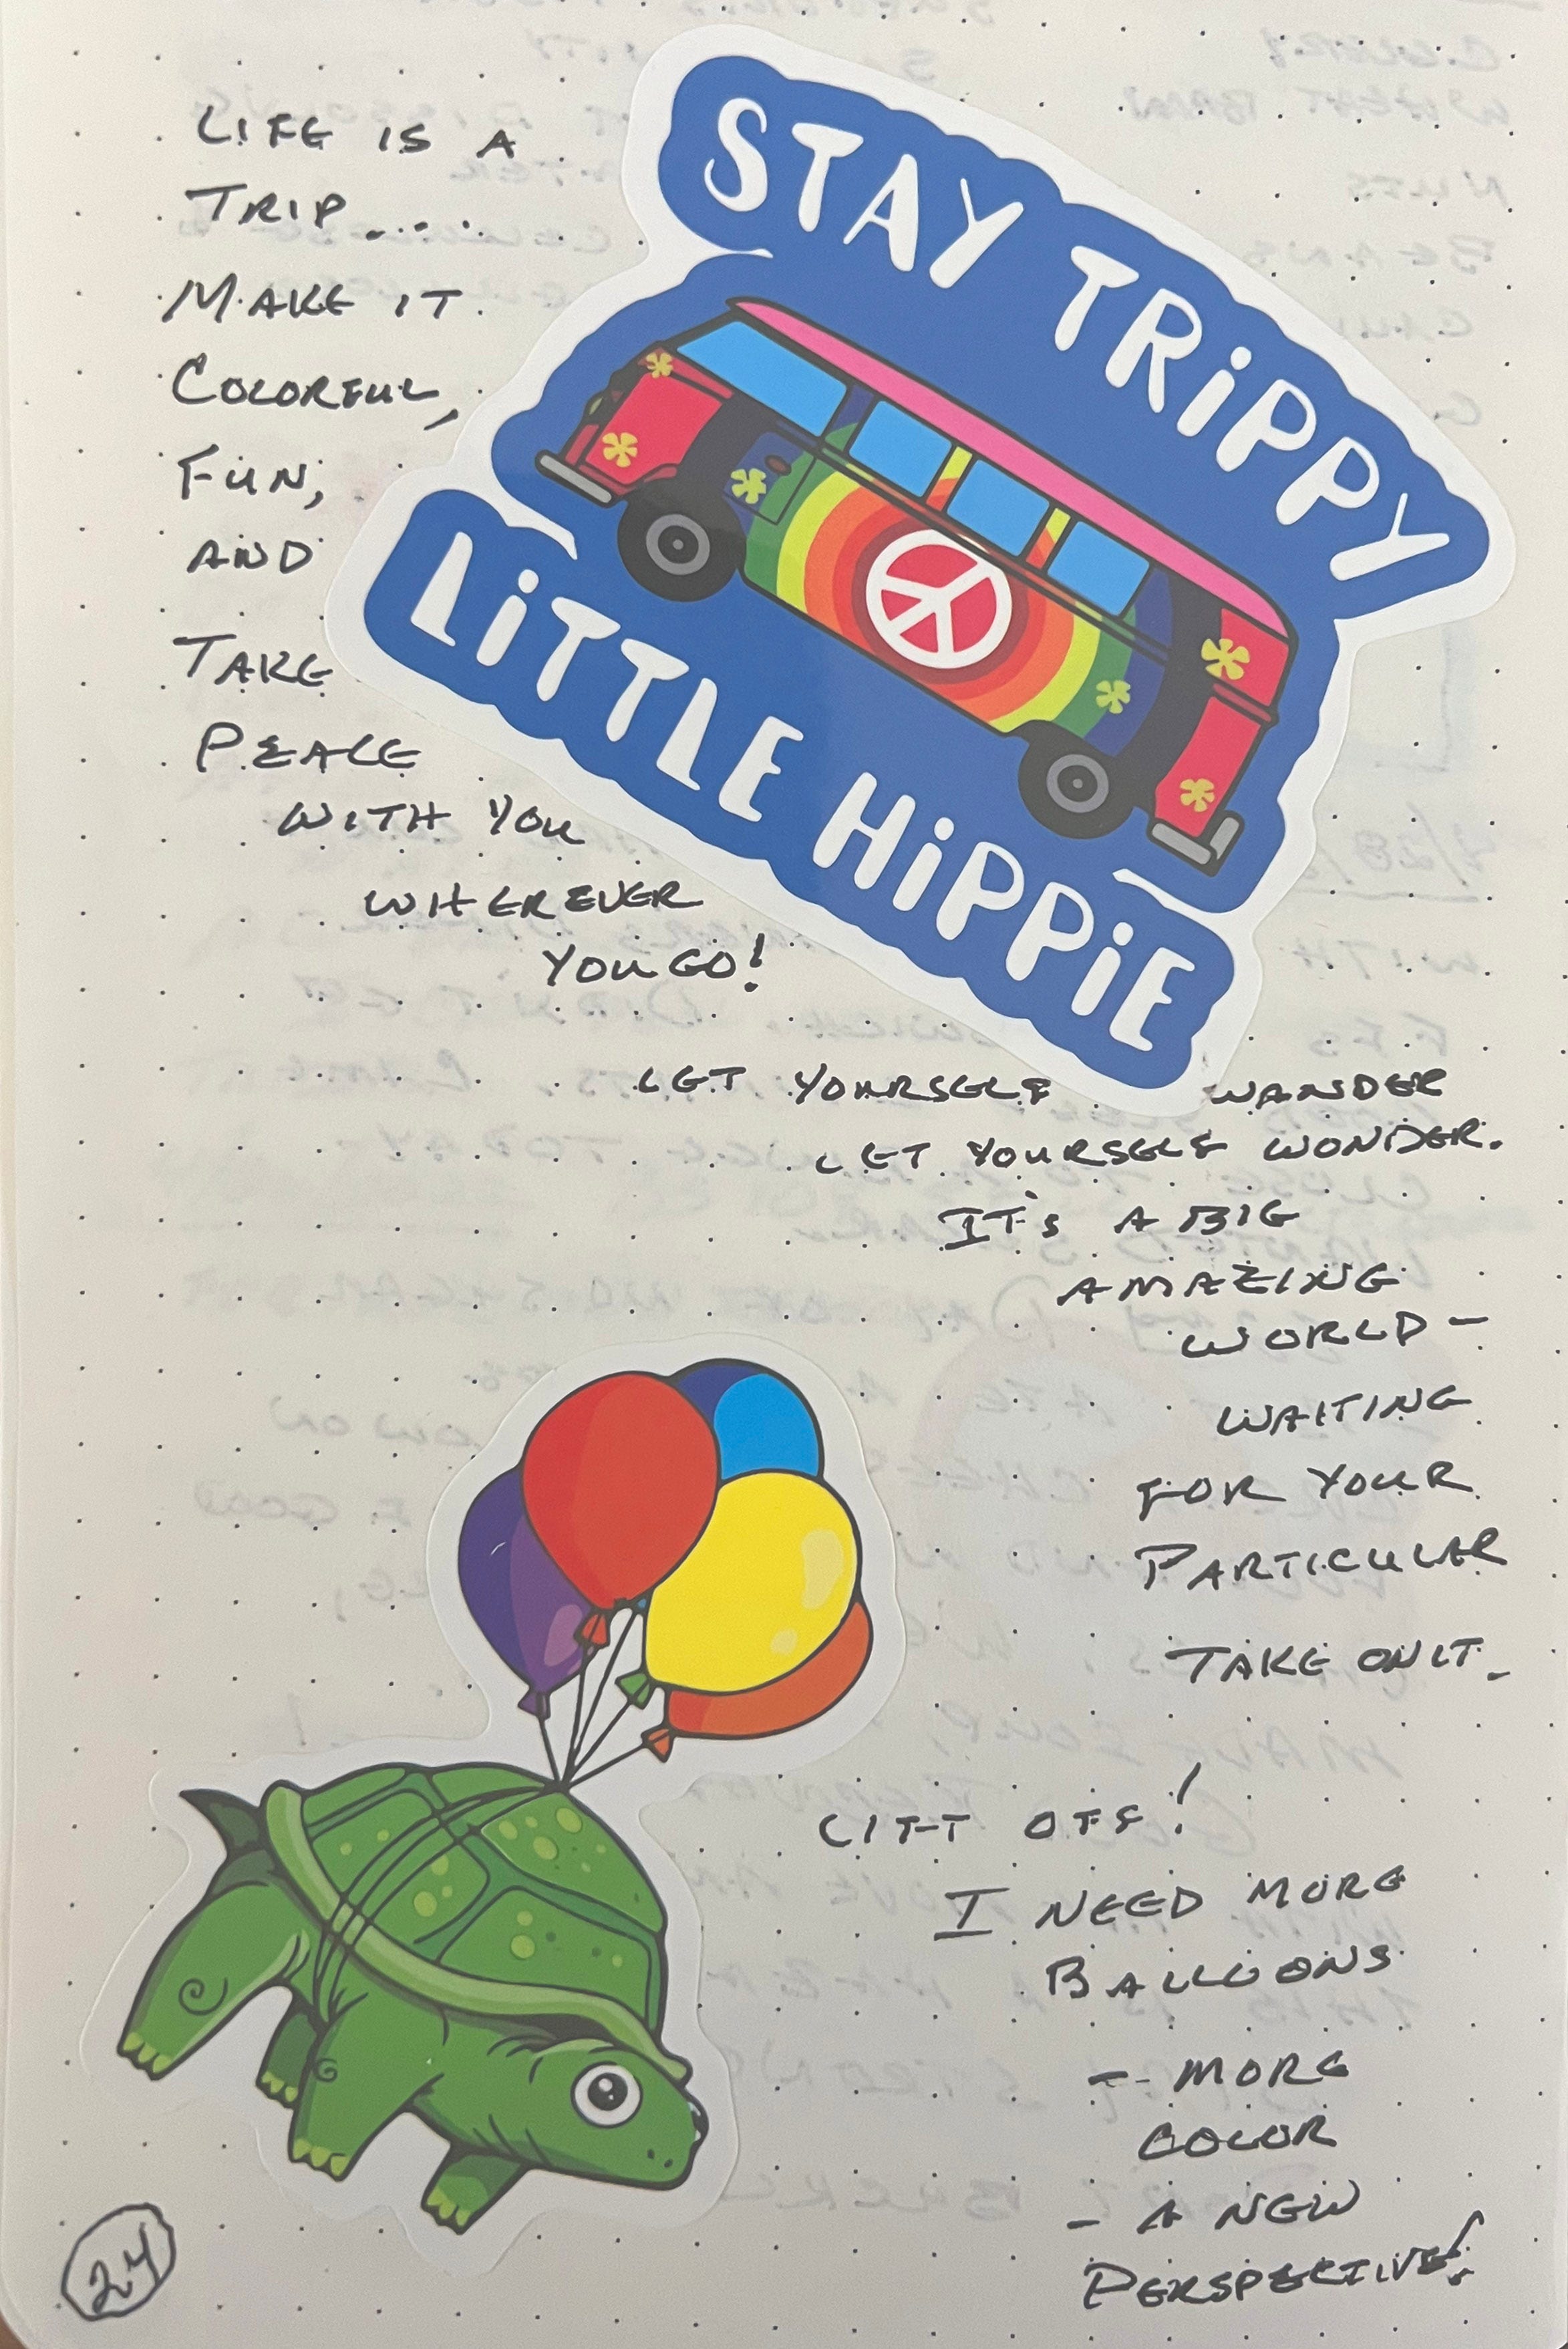 LIFE IS A
TRIP....
MAKE IT
COLORFUL,
FUN,
AND
TAKE
PEACE
WITH YOU
WHEREVER
YOU GO!
STAY TRIPPY
LITTLE HIPPIE
LET YOURSELF WANDER
LET YOURSELF WONDER.
IT'S A BIG
AMAZING
WORLD -
WAITING
FOR YOUR
PARTICULAR
TAKE ON IT.
LIFT OFF!
I NEED MORE
BALLOONS
- MORE
COLOR
- A NEW
PERSPECTIVE!
24